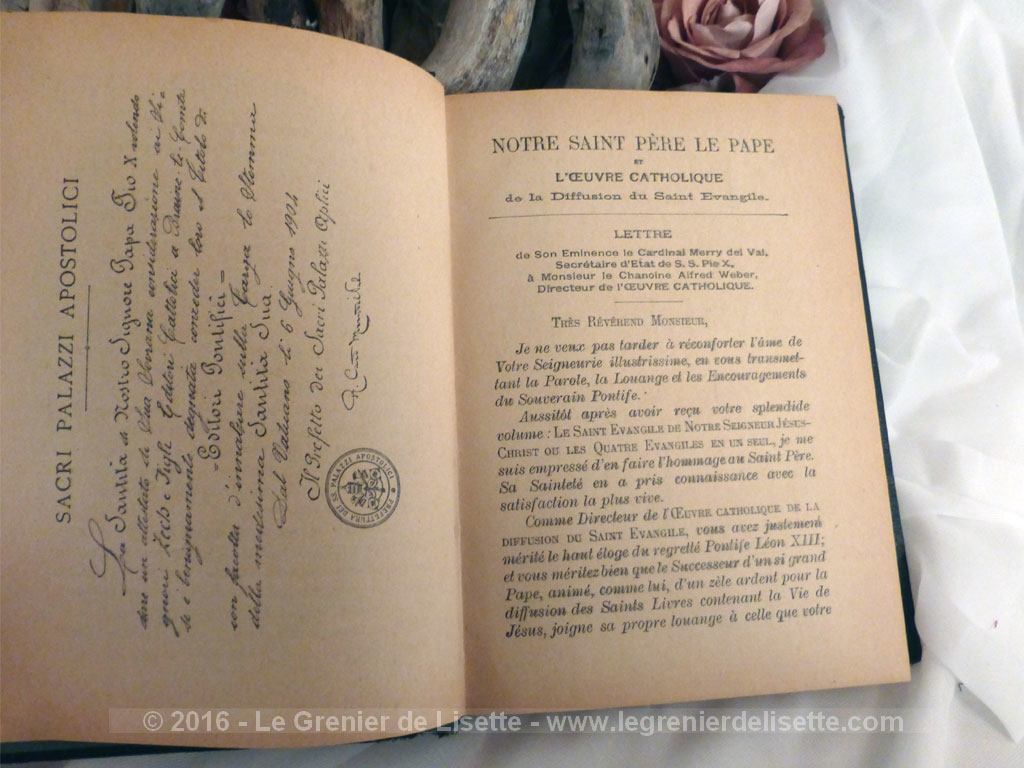 SACRI PALAZZI APOSTOLICI
La Santità di Nostro Signore Papa Pio X volendo
dare un attestato di Sua Sovrana considerazione ai Si-
gnori Zech e Figli Editori Cattolici a Braine-le-Comte
si è benignamente degnata conceder loro il titolo di
"Editori Pontifici"
con facoltà d'innalzare sulla Targa lo Stemma
della medesima Santità Sua.
Dal Vaticano li 6 Giugno 1904
Il Prefetto dei Sacri Palazzi Aplici
PREFETTURA DEI SS. PALAZZI APOSTOLICI
NOTRE SAINT PÈRE LE PAPE
ET
L'ŒUVRE CATHOLIQUE
de la Diffusion du Saint Evangile.
LETTRE
de Son Eminence le Cardinal Merry del Val,
Secrétaire d'Etat de S. S. Pie X,
à Monsieur le Chanoine Alfred Weber,
Directeur de l'ŒUVRE CATHOLIQUE.
TRÈS RÉVÉREND MONSIEUR,
Je ne veux pas tarder à réconforter l'âme de
Votre Seigneurie illustrissime, en vous transmet-
tant la Parole, la Louange et les Encouragements
du Souverain Pontife.
Aussitôt après avoir reçu votre splendide
volume : LE SAINT EVANGILE DE NOTRE SEIGNEUR JÉSUS-
CHRIST OU LES QUATRE EVANGILES EN UN SEUL, je me
suis empressé d'en faire l'hommage au Saint Père.
Sa Sainteté en a pris connaissance avec la
satisfaction la plus vive.
Comme Directeur de l'ŒUVRE CATHOLIQUE DE LA
DIFFUSION DU SAINT EVANGILE, vous avez justement
mérité le haut éloge du regretté Pontife Léon XIII;
et vous méritez bien que le Successeur d'un si grand
Pape, animé, comme lui, d'un zèle ardent pour la
diffusion des Saints Livres contenant la Vie de
Jésus, joigne sa propre louange à celle que votre
© 2016 - Le Grenier de Lisette - www.legrenierdelisette.com